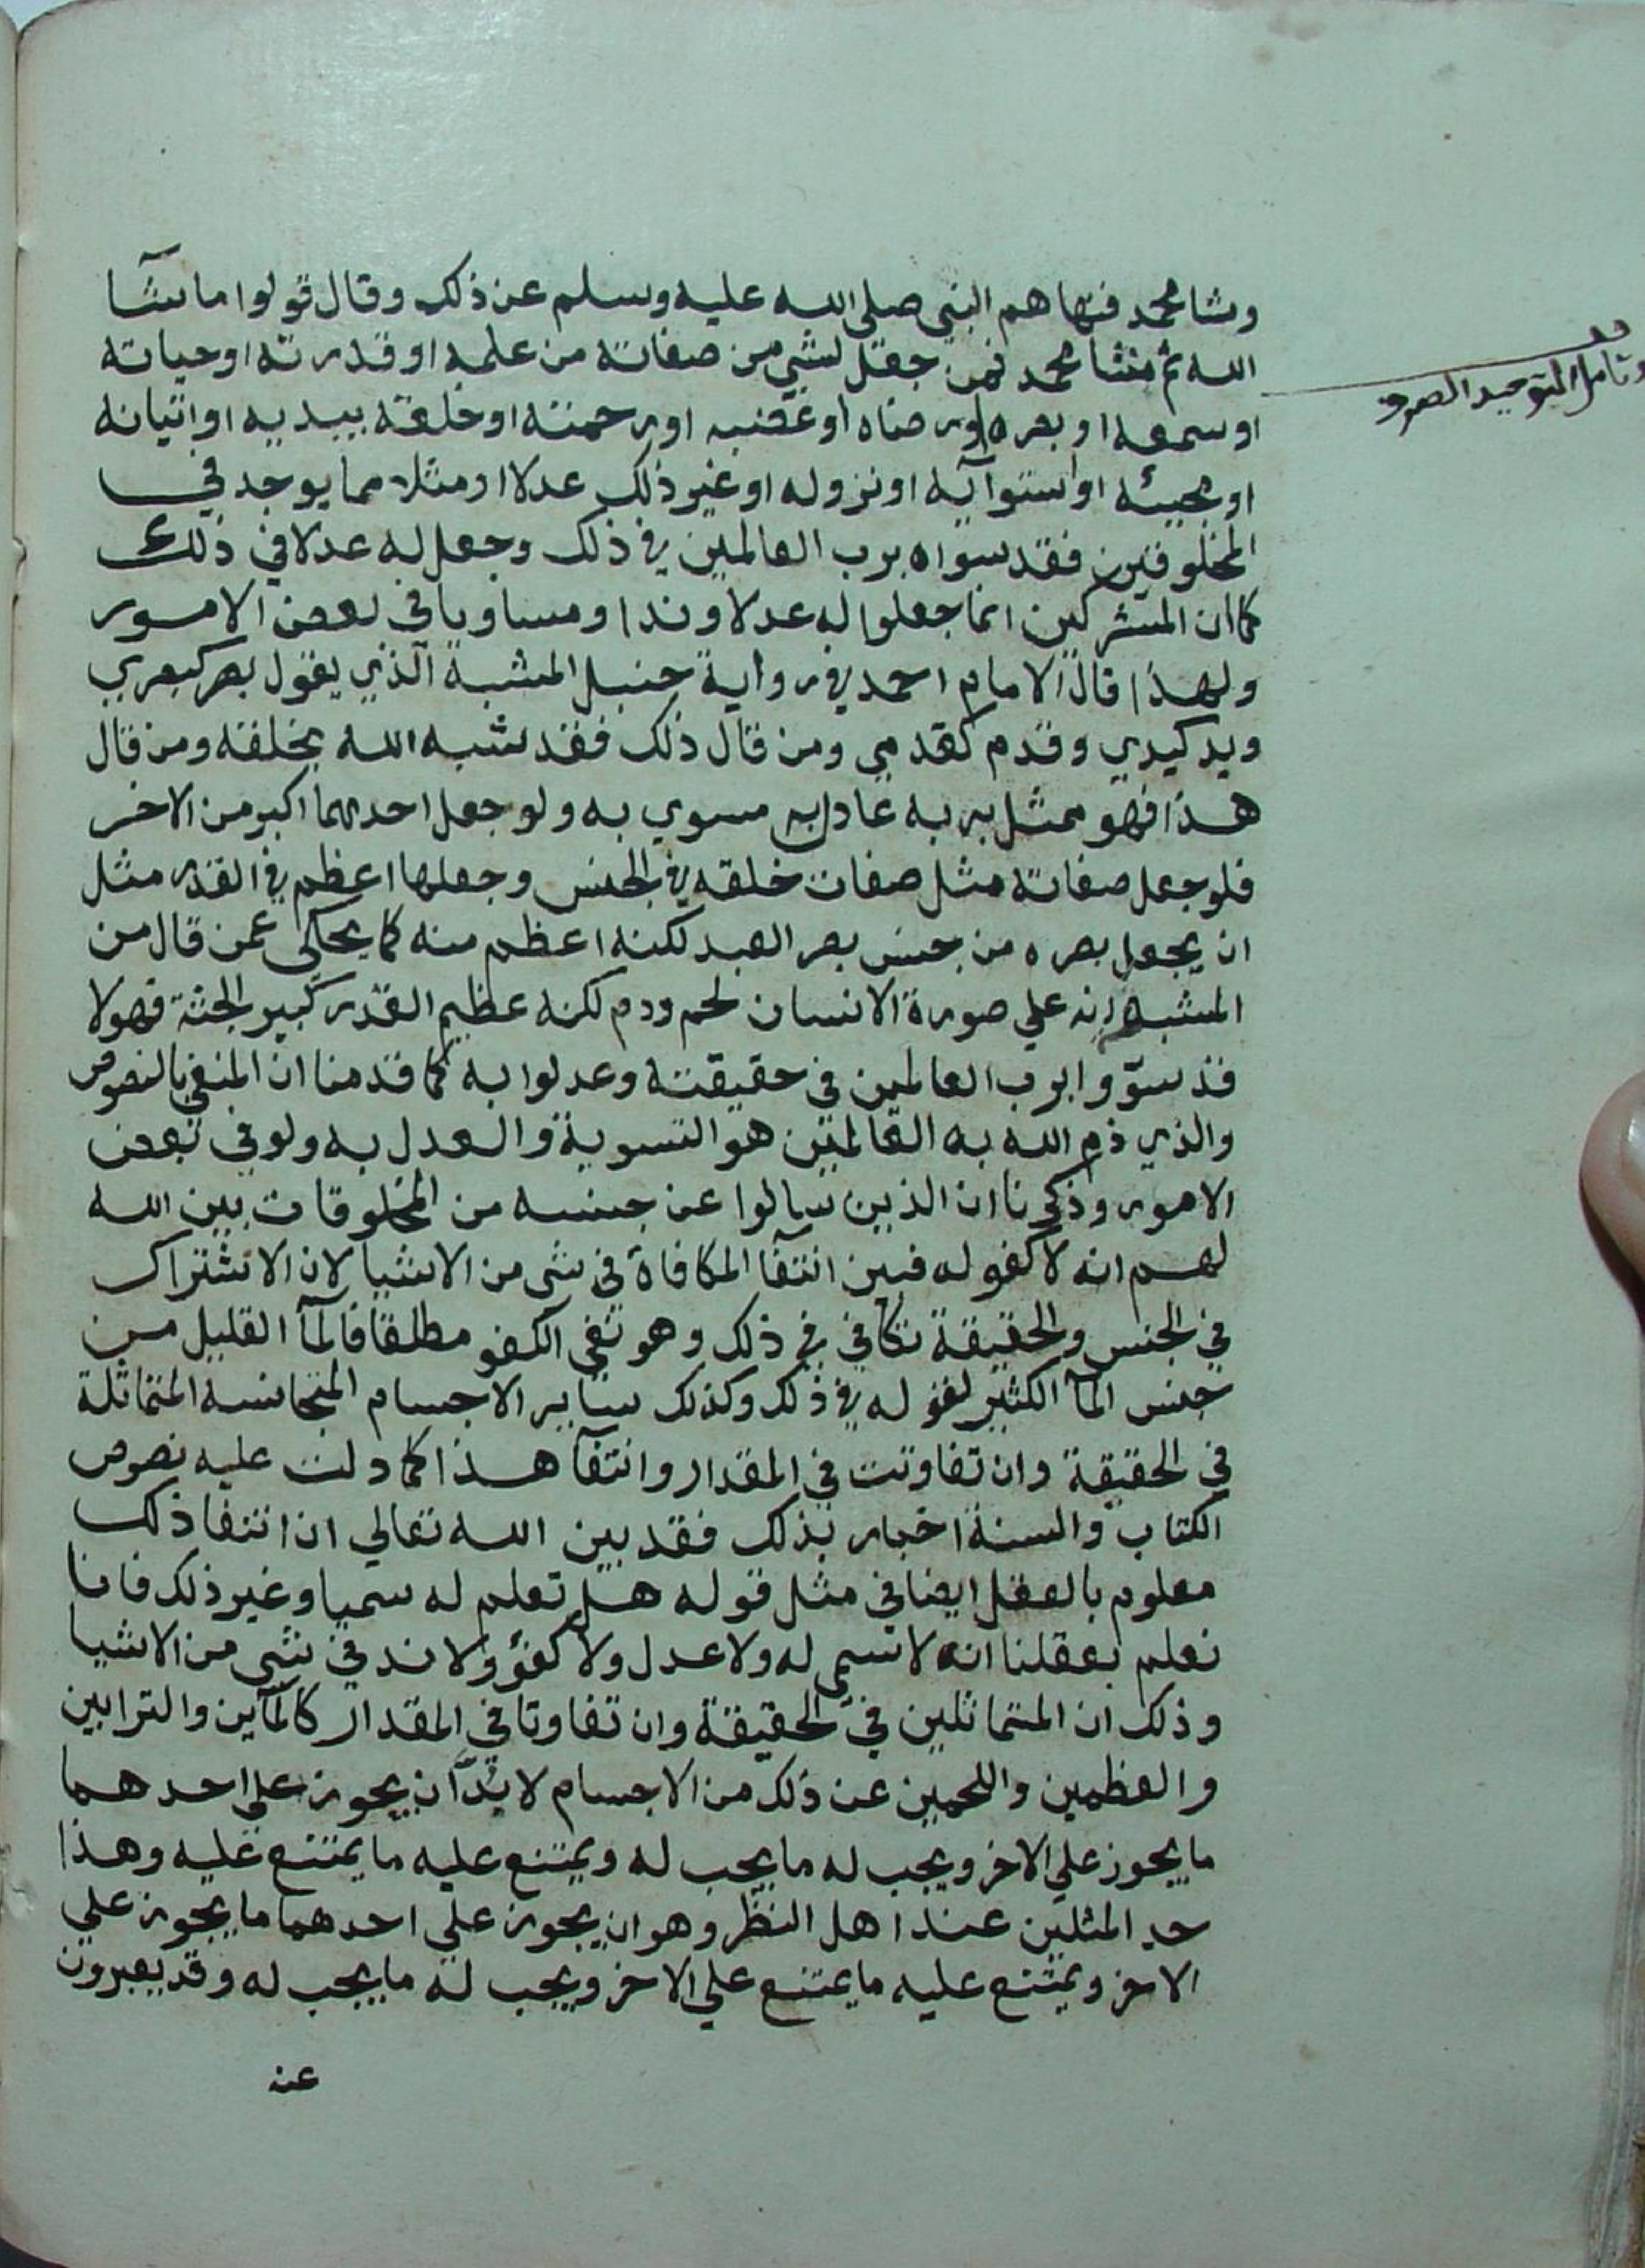 وشا محمد فنهاهم النبي صلى الله عليه وسلم عن ذلك وقال قولوا ما شآ
الله ثم شا محمد فمن جعل لشي من صفاته من علمه او قدرته او حياته
او سمعه او بصره او رضاه او غضبه او رحمته او خلقه بيديه او اتيانه
او مجيئه او استوآيه او نزوله او غير ذلك عدلا او مثلا مما يوجد في
المخلوقين فقد سواه برب العالمين في ذلك وجعل له عدلا في ذلك
كما ان المشركين انما جعلوا له عدلا وندا ومساويا في بعض الامور
ولهذا قال الامام احمد في رواية حنبل المشبة الذي يقول بصر كبصري
ويد كيدي وقدم كقدمي ومن قال ذلك فقد شبه الله بخلقه ومن قال
هذا فهو ممثل بربه عادل به مسوي به ولو جعل احدهما اكبر من الاخر
فلو جعل صفاته مثل صفات خلقه في الجنس وجعلها اعظم في القدر مثل
ان يجعل بصره من جنس بصر العبد لكنه اعظم منه كما يحكى عمن قال من
المشبه انه علي صورة الانسان لحم ودم لكنه عظيم القدر كبير الجثة فهولا
قد سوّوا برب العالمين في حقيقته وعدلوا به كما قدمنا ان المنفي بالنصوص
والذي ذم الله به العالمين هو التسوية والعدل به ولو في بعض
الامور وذكرنا ان الذين سالوا عن جنسه من المخلوقات بين الله
لهم انه لا كفو له فبين انتفآ المكافاة في شي من الاشيا لان الاشتراك
في الجنس والحقيقة تكافي في ذلك وهو نفى الكفو مطلقا فالمآ القليل من
جنس المآ الكثير كفو له في ذلك وكذلك ساير الاجسام المتجانسه المتماثلة
في الحقيقة وان تفاوتت في المقدار وانتفآ هذا كما دلت عليه نصوص
الكتاب والسنة اخبار بذلك فقد بين الله تعالي ان انتفا ذلك
معلوم بالعقل ايضا في مثل قوله هل تعلم له سميا وغير ذلك فانا
نعلم بعقلنا انه لا سمي له ولا عدل ولا كفؤ ولا ند في شي من الاشيا
وذلك ان المتماثلين في الحقيقة وان تفاوتا في المقدار كالمآين والترابين
والعظمين واللحمين عن ذلك من الاجسام لا بدّ ان يجوز على احدهما
ما يجوز علي الاخر ويجب له ما يجب له ويمتنع عليه ما يمتنع عليه وهذا
حد المثلين عند اهل النظر وهو ان يجوز علي احدهما ما يجوز علي
الاخر ويمتنع عليه ما يمتنع علي الاخر ويجب له ما يجب له وقد يعبرون
عنه
التوحيد الصرف